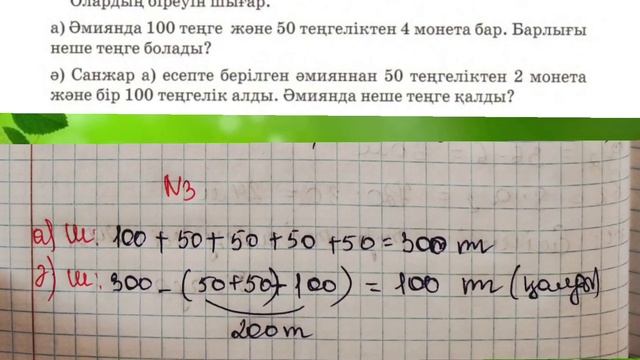 Олардың біреуін шығар.
а) Әмиянда 100 теңге және 50 теңгеліктен 4 монета бар. Барлығы
неше теңге болады?
ә) Санжар а) есепте берілген әмияннан 50 теңгеліктен 2 монета
және бір 100 теңгелік алды. Әмиянда неше теңге қалды?
N3
а) Ш: 100 + 50 + 50 + 50 + 50 = 300 т
ә) Ш: 300 - (50+50)+100) = 100 т (қалды)
200 т